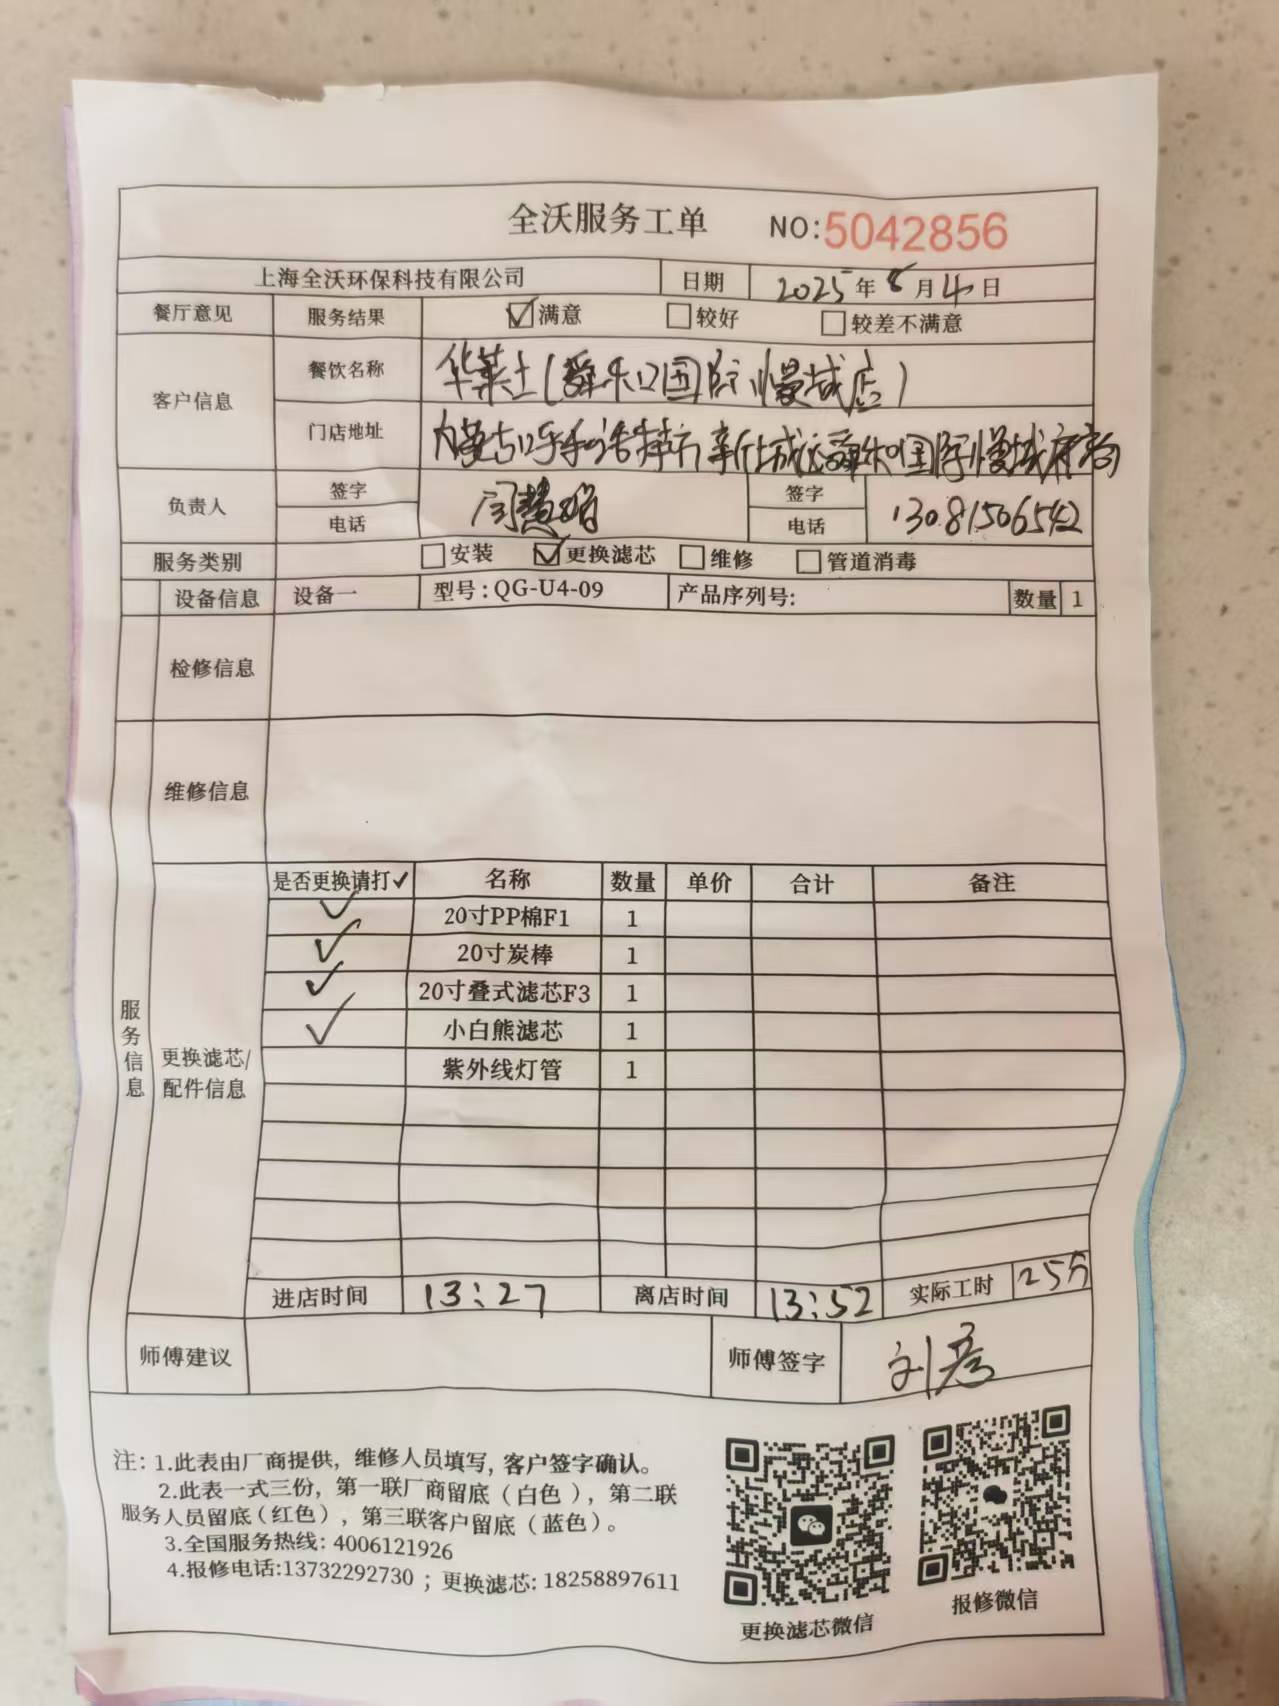 全沃服务工单 NO:5042856
上海全沃环保科技有限公司 日期 2025年8月4日
餐厅意见 服务结果 满意 较好 较差不满意
客户信息 餐饮名称 华莱士(国际慢城店)
门店地址 内蒙古呼和浩特市新城区国际慢城
负责人 签字 签字
电话 电话 13081506542
服务类别 安装 更换滤芯 维修 管道消毒
设备信息 设备一 型号:QG-U4-09 产品序列号: 数量 1
检修信息
维修信息
服务信息
更换滤芯/配件信息
是否更换请打✓ 名称 数量 单价 合计 备注
✓ 20寸PP棉F1 1
✓ 20寸炭棒 1
✓ 20寸叠式滤芯F3 1
✓ 小白熊滤芯 1
紫外线灯管 1
进店时间 13:27 离店时间 13:52 实际工时 25分
师傅建议 师傅签字 刘彦
注:1.此表由厂商提供，维修人员填写,客户签字确认。
2.此表一式三份，第一联厂商留底(白色)，第二联
服务人员留底(红色)，第三联客户留底(蓝色)。
3.全国服务热线:4006121926
4.报修电话:13732292730；更换滤芯:18258897611
更换滤芯微信
报修微信